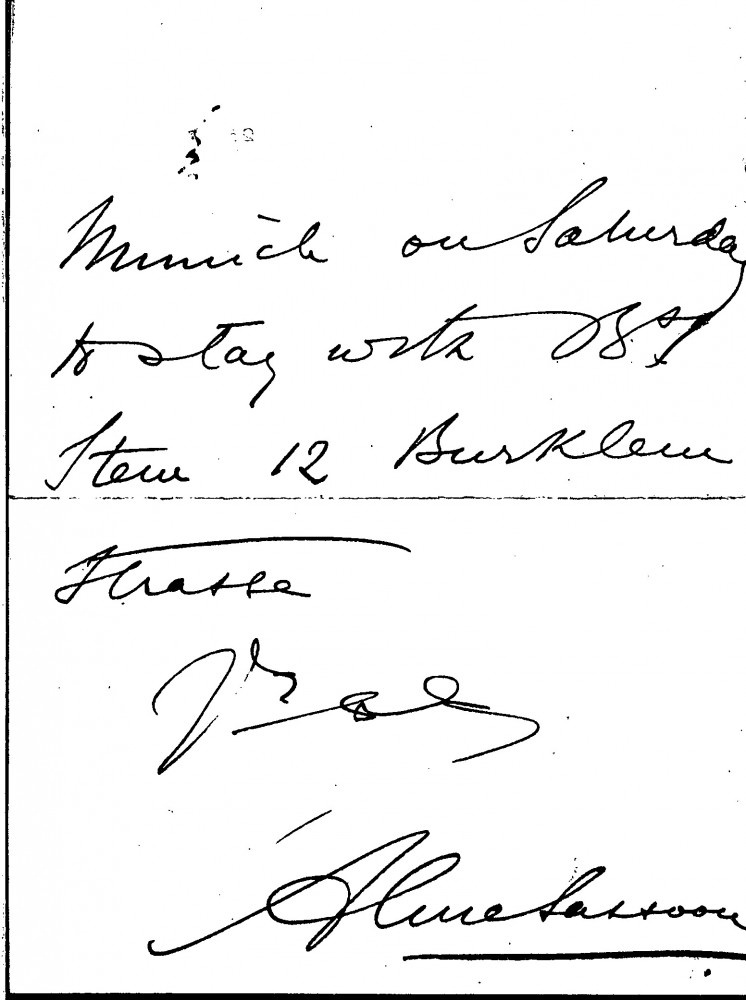 Munich on Saturday
to stay with
Stern 12 Burklein
Strasse
Yrs
Sassoon